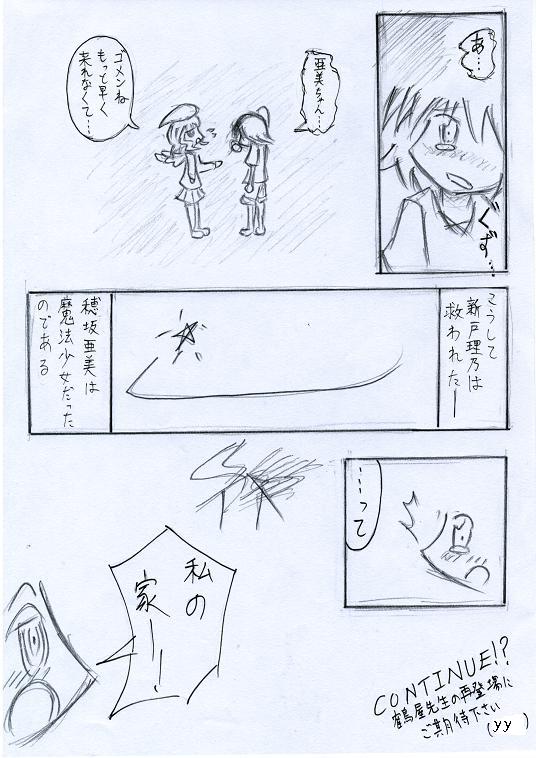 あ…
ぐず…
亜美ちゃん…
ゴメンね
もっと早く
来れなくて…
こうして
新戸理乃は
救われたー
穂坂亜美は
魔法少女だった
のである
…って
私の
家ーー!!
CONTINUE!?
鶴屋先生の再登場に
ご期待下さい
(yy )